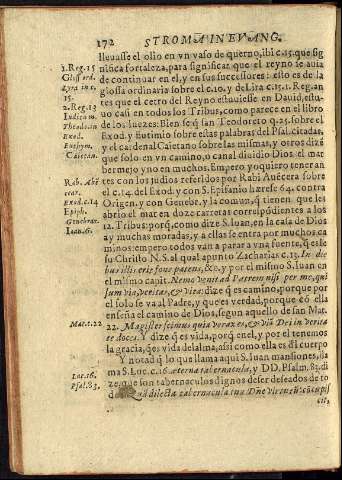 172 STROMA IN EVANG.
lleuasse el olio en vn vaso de querno, ibi c. 15. que sig
1. Reg. 15 nifica fortaleza, para significar que el reyno se auia
Gloss ord. de continuar en el, y en sus successores: esto es de la
Lyra in c. glossa ordinaria sobre el c. 10. y de Lira c. 15. 1. Reg. an
15. tes que el cetro del Reyno estuuiesse en Dauid, estu-
2. Reg. 13 uo casi en todos los Tribus, como parece en el libro
Iudicum. de los Iuezes. Bien sea san Teodoreto q. 25. sobre el
Theodo. in Exod. y Eutimio sobre estas palabras del Psal. citadas,
Exod. y el cardenal Caietano sobre las mismas, y otros dizē
Euthym. que solo en vn camino, o canal diuidio Dios el mar
Caietan. bermejo y no en muchos. Empero yo quiero tener an
tes con los judios referidos por Rabi Auēcera sobre
Rab. Abē el c. 14. del Exod. y con S. Epifanio hærese 64. contra
cerar. Origen. y con Genebr. y la comun, q̃ tienen que les
Exod. c. 14 abrio el mar en doze carreras correspōdientes a los
Epiph. 12. Tribus: porq̃, como dize S. Iuan, en la casa de Dios
Genebrar. ay muchas moradas, y a ellas se entra por muchos ca
Ioan. 6. minos: empero todos van a parar a vna fuente, q̃ este
su Christo N. S. al qual apunto Zacharias c. 13. In die
bus illis erit fons patens, &c. y por el mismo S. Iuan en
el mismo capit. Nemo venit ad Patrem nisi per me, qui
sum via, veritas, & vita: dize q̃ es camino, porque por
el solo se va al Padre, y que es verdad, porque cō ella
enseña el camino de Dios, segun aquello de san Mat.
Mat. c. 22 22. Magister scimus quia verax es, & viā Dei in verita
te doces. Y dize q̃ es vida, porq̃ en el, y por el tenemos
la gracia, q̃ es vida del alma, assi como ella es dl̃ cuerpo
Y notad q̃ lo que llama aqui S. Iuan mansiones, lla
Luc. 16. ma S. Luc. c. 16. æterna tabernacula, y DD. Psalm. 83. di
Psal. 83. ze, que son tabernaculos dignos de ser deseados de to
dos. Quā dilecta tabernacula tua Dn̄e virtutū: cōcupis
cit,